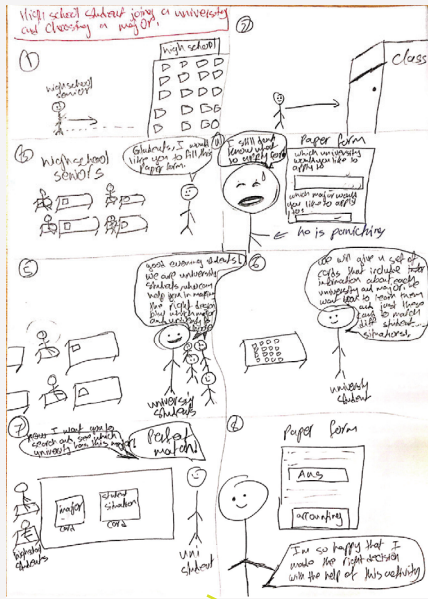 High school student joining a university
and choosing a major.
1
high school
senior
high school
2
class
3
high school
seniors
Students, I would
like you to fill this
paper form.
4
I still don't
know what
to apply for!
Paper form
which university
would you like to
apply to
which major would
you like to apply
to?
he is panicking
5
good evening students!
we are university
students who can
help you in making
the right decision
university
students
6
we will give a set of
cards that include
information about each
university and major.
want you to read them
and just these
cards to match
diff student
situations!
university
student
7
now I want you to
search and see which
university has this major
Perfect
match!
major
card
student
situation
card
high school
students
uni
student
8
Paper form
AUS
accounting
I'm so happy that I
made the right decision
with the help of this activity